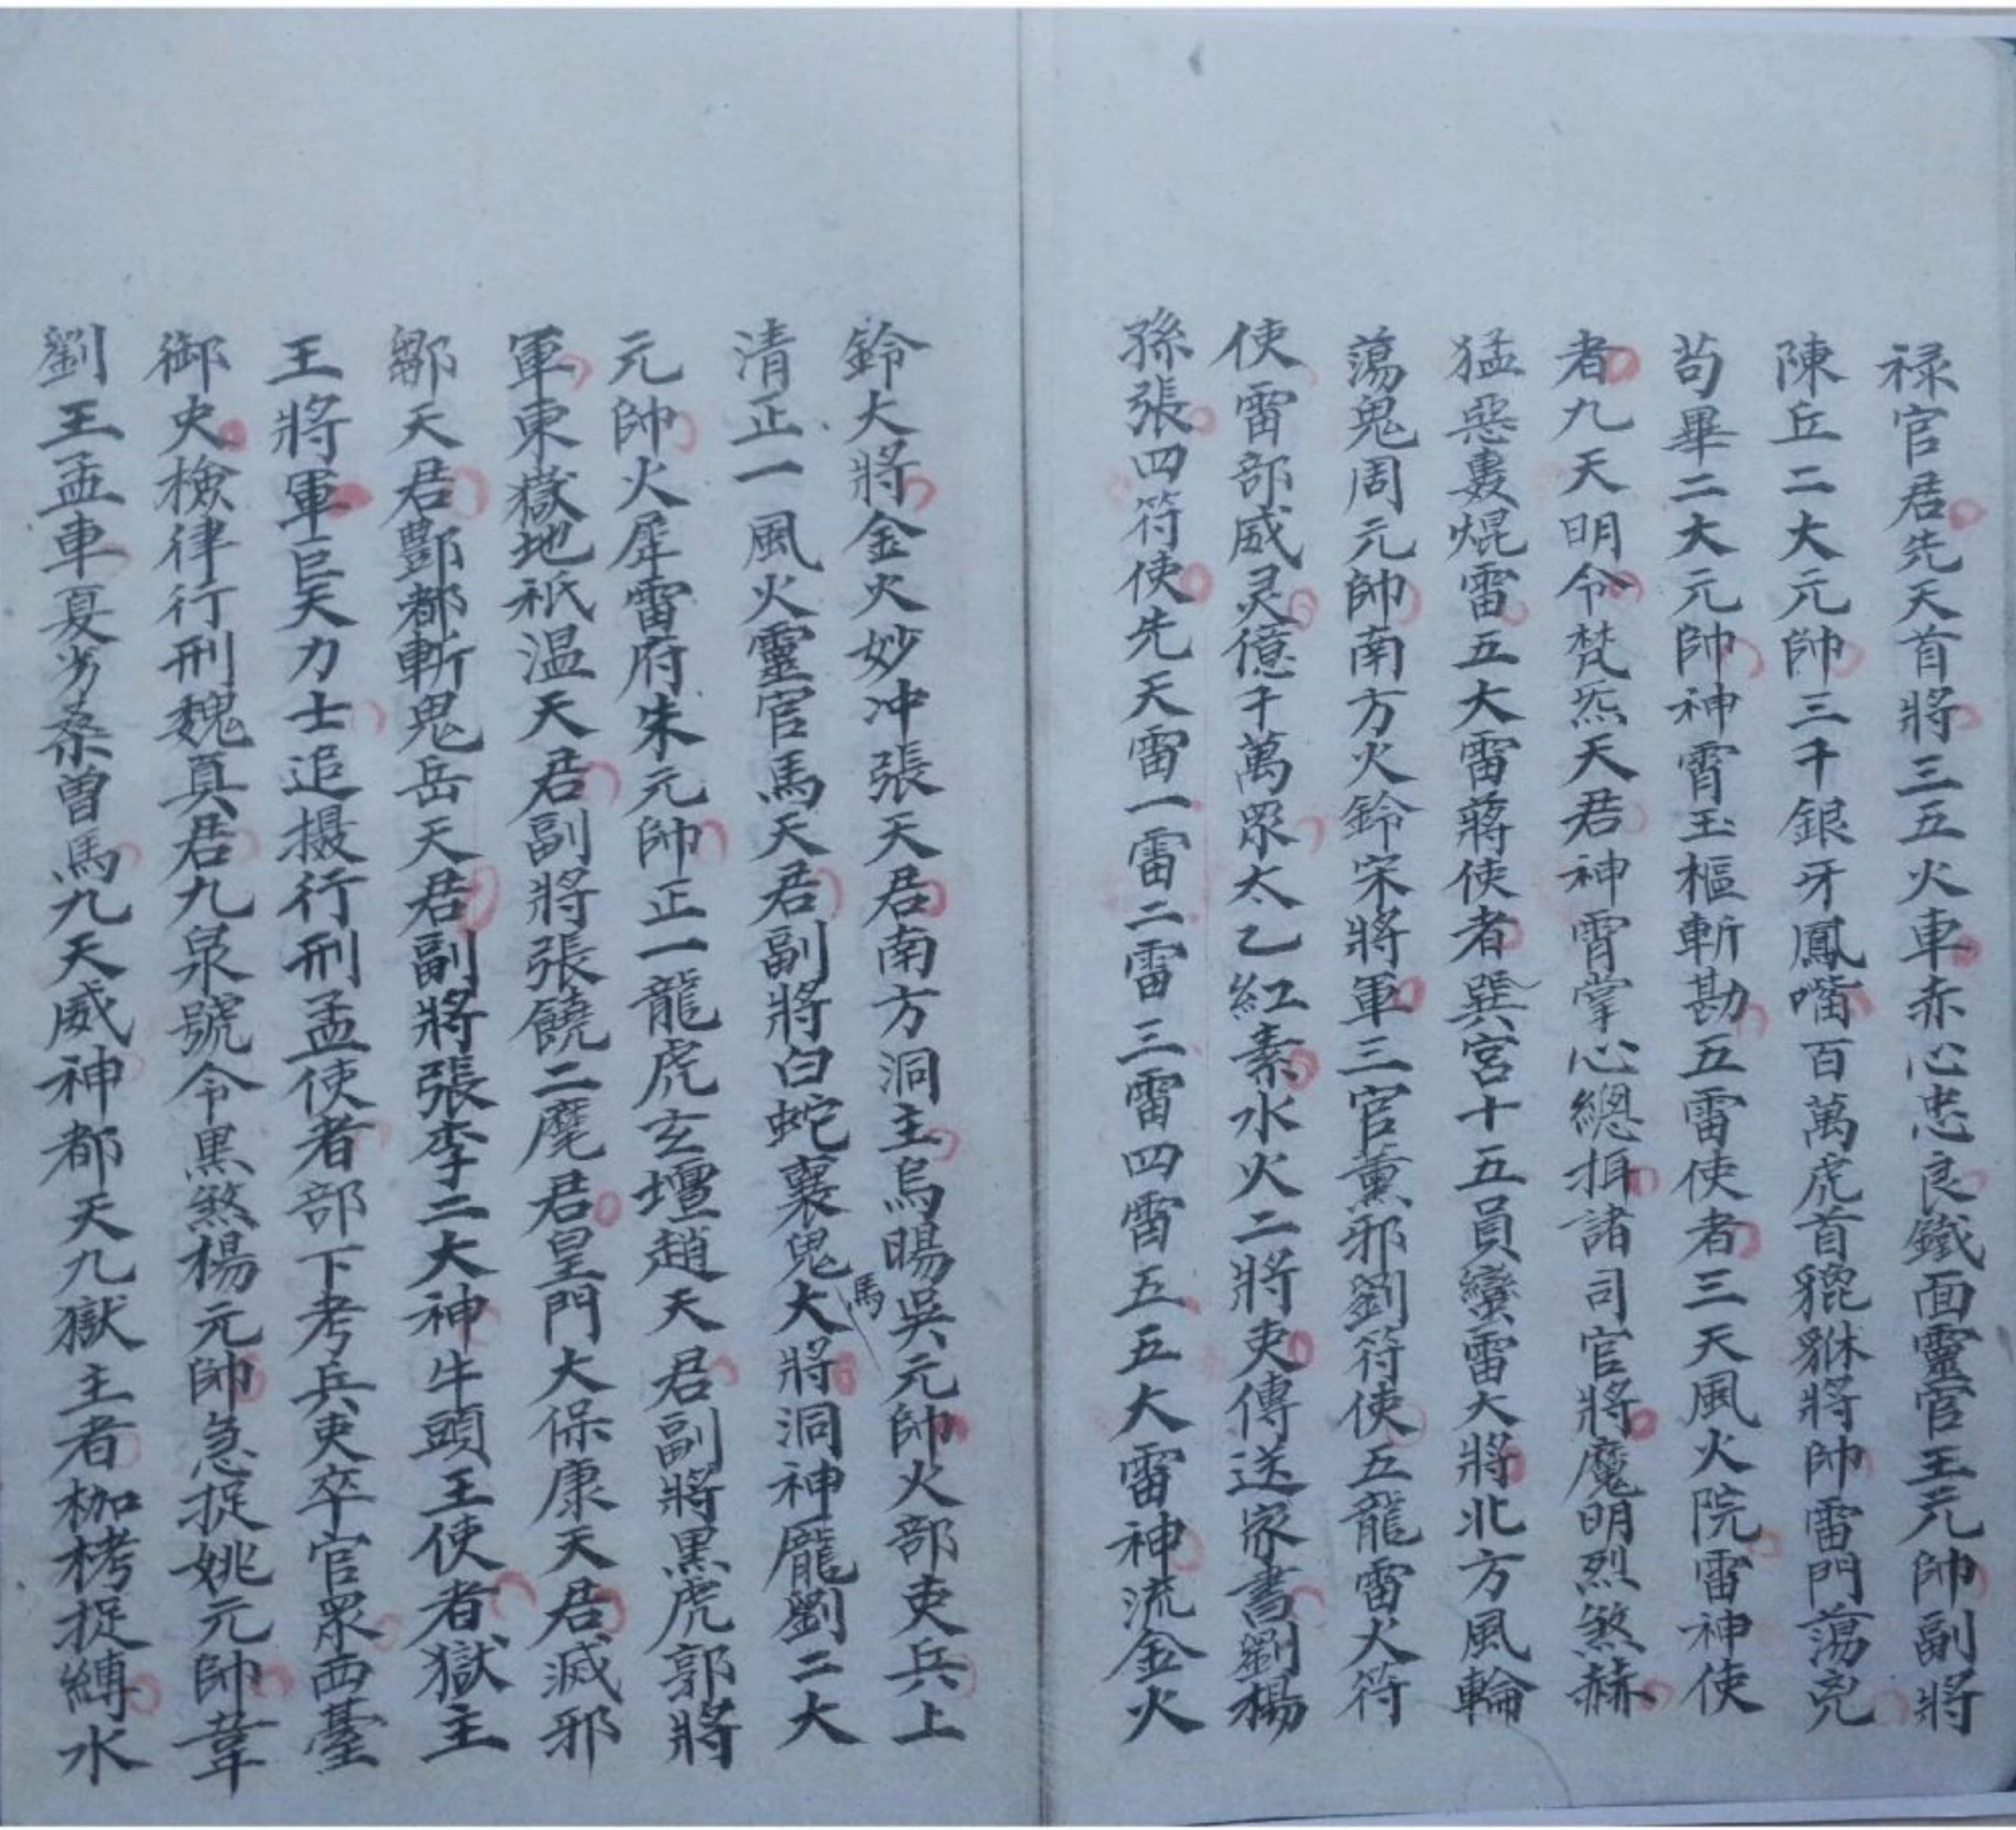 禄官君先天首將三五火車赤心忠良鐵面靈官王元帥副將
陳丘二大元帥三千銀牙鳳嘴百萬虎首貔貅將帥雷門蕩兇
茍畢二大元帥神霄玉樞斬勘五雷使者三天風火院雷神使
者九天明令梵炁天君神霄掌心總抈諸司官將魔明烈煞赫
猛惡轰焜雷五大雷蔣使者巽宮十五員蠻雷大將北方風輪
蕩鬼周元帥南方火鈴宋將軍三官薰邪劉符使五龍雷火符
使雷部威灵億千萬眾太乙紅素水火二將吏傳送家書劉楊
孫張四符使先天雷一雷二雷三雷四雷五五大雷神流金火
鈴大將金火妙冲張天君南方洞主烏暘吳元帥火部吏兵上
清正一風火靈官馬天君副將白蛇襄鬼馬大將洞神龐劉二大
元帥火犀雷府朱元帥正一龍虎玄壇趙天君副將黑虎郭將
軍東嶽地祇温天君副將張饒二麾君皇門大保康天君滅邪
鄒天君酆都斬鬼岳天君副將張李二大神牛頭王使者獄主
王將軍巨天力士追摄行刑孟使者部下考兵吏卒官眾西臺
御史檢律行刑魏真君九泉號令黑煞楊元帥急捉姚元帥韋
劉王孟車夏劣桑曾馬九天威神都天九獄主者枷栲捉縛水